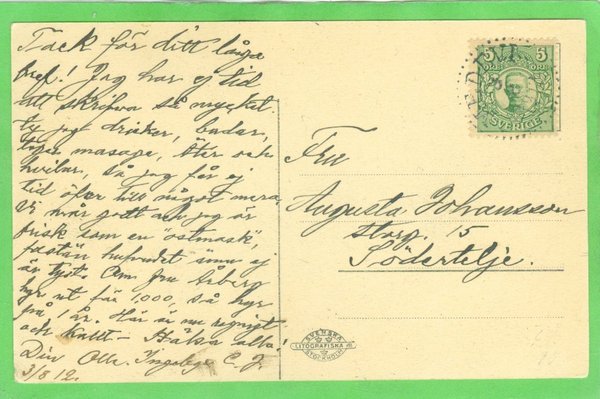 Tack för ditt långa
bref! Jag har ej tid
att skrifva så mycket
ty jag dricker, badar,
tager massage, äter och
hvilar, så jag får ej
tid öfver till något mera.
Vi mår godt och jag är
frisk som en "ostmask",
fastän hufvudet ännu ej
är tyst. Om fru Åberg
hyr ut för 1,000, så hyr
på 1 år. Här är nu regnigt
och kallt – Hälsa alla!
Din Olle. Ingelge C. J.
3/8 12.
5 5
SVERIGE
Fru
Augusta Johansson
Storg. 15
Södertelje.
SVENSKA
LITOGRAFISKA AB
STOCKHOLM